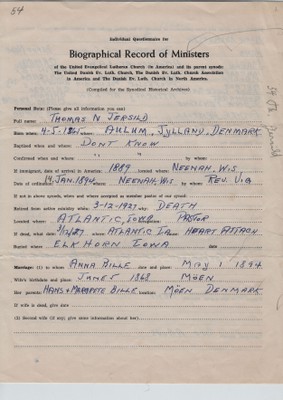 54
Individual Questionnaire for
Biographical Record of Ministers
of the United Evangelical Lutheran Church (in America) and its parent synods:
The United Danish Ev. Luth. Church, The Danish Ev. Luth. Church Association
in America and The Danish Ev. Luth. Church in North America.
(Compiled for the Synodical Historical Archives)
Personal Data: (Please give all information you can)
Full name: THOMAS N JERSILD
Born when: 4-5- where: AULUM, JYLLAND, DENMARK
Baptized when and where: DON'T KNOW
Confirmed when and where " " by whom:
If immigrant, date of arrival in America: 1889 Located where: NEENAH, WIS
Date of ordination: 14 JAN. 1894 where: NEENAH, WIS. by whom: REV.
If not in above synods, when and where accepted as member pastor of our synod:
Retired from active ministry when: 3-12-1927 why: DEATH
Located where: ATLANTIC, IOWA PASTOR
If dead, what date: 3/12/27 where ATLANTIC IA HEART ATTACK
Buried where ELK HORN IOWA date
Marriage: (1) to whom: ANNA BILLE date and place: MAY 1 1894
Wife's birthdate and place: JAN 27 1868 MÖEN
Her parents: HANS & MARGRETE BILLE location: MÖEN DENMARK
If wife is dead, give date
(2) Second wife (2) any; give same information about her)